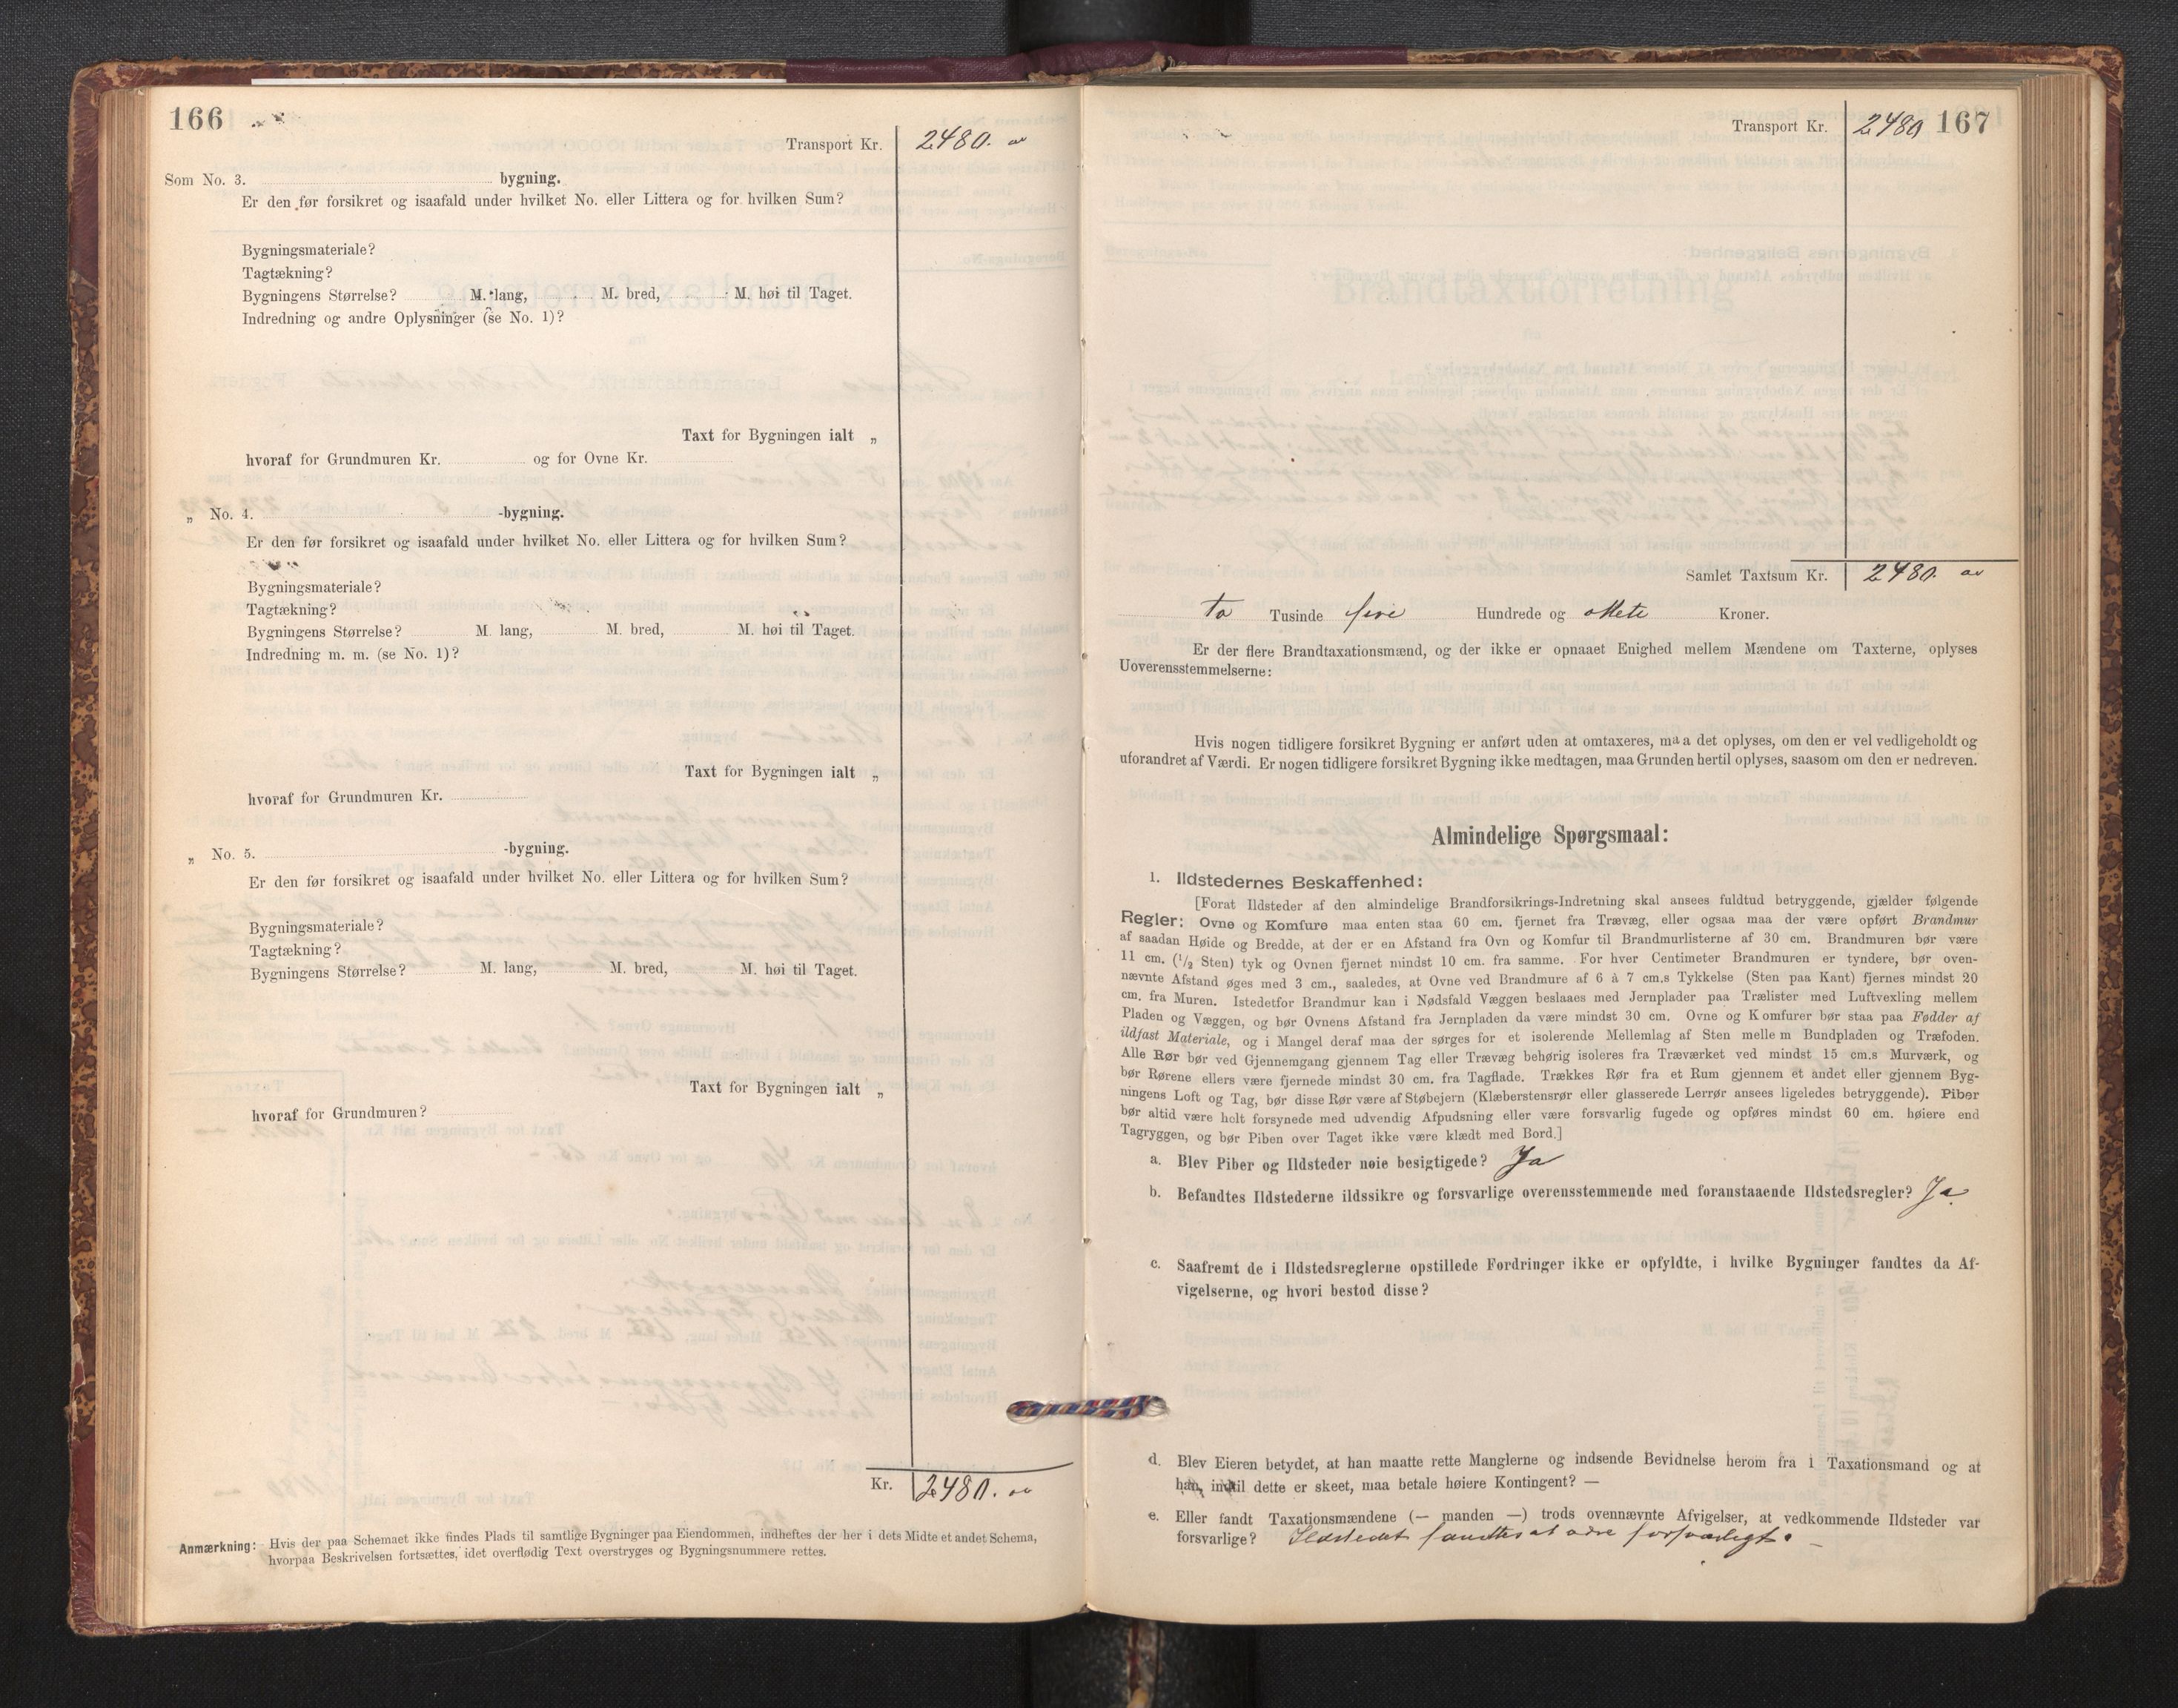 166
Transport Kr. 2480.
Som No. 3. bygning.
Er den før forsikret og isaafald under hvilket No. eller Littera og for hvilken Sum?
Bygningsmateriale?
Tagtækning?
Bygningens Størrelse? M. lang, M. bred, M. høi til Taget.
Indredning og andre Oplysninger (se No. 1)?
Taxt for Bygningen ialt „
hvoraf for Grundmuren Kr. og for Ovne Kr.
„ No. 4. -bygning.
Er den før forsikret og isaafald under hvilket No. eller Littera og for hvilken Sum?
Bygningsmateriale?
Tagtækning?
Bygningens Størrelse? M. lang, M. bred, M. høi til Taget.
Indredning m. m. (se No. 1)?
Taxt for Bygningen ialt „
hvoraf for Grundmuren Kr.
„ No. 5. -bygning.
Er den før forsikret og isaafald under hvilket No. eller Littera og for hvilken Sum?
Bygningsmateriale?
Tagtækning?
Bygningens Størrelse? M. lang, M. bred, M. høi til Taget.
Taxt for Bygningen ialt „
hvoraf for Grundmuren?
Kr. 2480.
Anmærkning: Hvis der paa Schemaet ikke findes Plads til samtlige Bygninger paa Eiendommen, indheftes der her i dets Midte et andet Schema,
hvorpaa Beskrivelsen fortsættes, idet overflødig Text overstryges og Bygningsnummere rettes.
Transport Kr. 2480 167
Samlet Taxtsum Kr. 2480.
to Tusinde fire Hundrede og ottete Kroner.
Er der flere Brandtaxationsmænd, og der ikke er opnaaet Enighed mellem Mændene om Taxterne, oplyses
Uoverensstemmelserne:
Hvis nogen tidligere forsikret Bygning er anført uden at omtaxeres, maa det oplyses, om den er vel vedligeholdt og
uforandret af Værdi. Er nogen tidligere forsikret Bygning ikke medtagen, maa Grunden hertil oplyses, saasom om den er nedreven.
Almindelige Spørgsmaal:
1. Ildstedernes Beskaffenhed:
[Forat Ildsteder af den almindelige Brandforsikrings-Indretning skal ansees fuldtud betryggende, gjælder følgende
Regler: Ovne og Komfure maa enten staa 60 cm. fjernet fra Trævæg, eller ogsaa maa der være opført Brandmur
af saadan Høide og Bredde, at der er en Afstand fra Ovn og Komfur til Brandmurlisterne af 30 cm. Brandmuren bør være
11 cm. (1/2 Sten) tyk og Ovnen fjernet mindst 10 cm. fra samme. For hver Centimeter Brandmuren er tyndere, bør oven-
nævnte Afstand øges med 3 cm., saaledes, at Ovne ved Brandmure af 6 à 7 cm.s Tykkelse (Sten paa Kant) fjernes mindst 20
cm. fra Muren. Istedetfor Brandmur kan i Nødsfald Væggen beslaaes med Jernplader paa Trælister med Luftvexling mellem
Pladen og Væggen, og bør Ovnens Afstand fra Jernpladen da være mindst 30 cm. Ovne og Komfurer bør staa paa Fødder af
ildfast Materiale, og i Mangel deraf maa der sørges for et isolerende Mellemlag af Sten mellem Bundpladen og Træfoden.
Alle Rør bør ved Gjennemgang gjennem Tag eller Trævæg behørig isoleres fra Træværket ved mindst 15 cm.s Murværk, og
bør Rørene ellers være fjernede mindst 30 cm. fra Tagflade. Trækkes Rør fra et Rum gjennem et andet eller gjennem Byg-
ningens Loft og Tag, bør disse Rør være af Støbejern (Klæberstensrør eller glasserede Lerrør ansees ligeledes betryggende). Piber
bør altid være helt forsynede med udvendig Afpudsning eller være forsvarlig fugede og opføres mindst 60 cm. høiere end
Tagryggen, og bør Piben over Taget ikke være klædt med Bord.]
a. Blev Piber og Ildsteder nøie besigtigede? Ja
b. Befandtes Ildstederne ildssikre og forsvarlige overensstemmende med foranstaaende Ildstedsregler? Ja.
c. Saafremt de i Ildstedsreglerne opstillede Fordringer ikke er opfyldte, i hvilke Bygninger fandtes da Af-
vigelserne, og hvori bestod disse?
d. Blev Eieren betydet, at han maatte rette Manglerne og indsende Bevidnelse herom fra 1 Taxationsmand og at
han, indtil dette er skeet, maa betale høiere Kontingent? —
e. Eller fandt Taxationsmændene (— manden —) trods ovennævnte Afvigelser, at vedkommende Ildsteder var
forsvarlige? Ildstedet fandtes at være forsvarligt. —